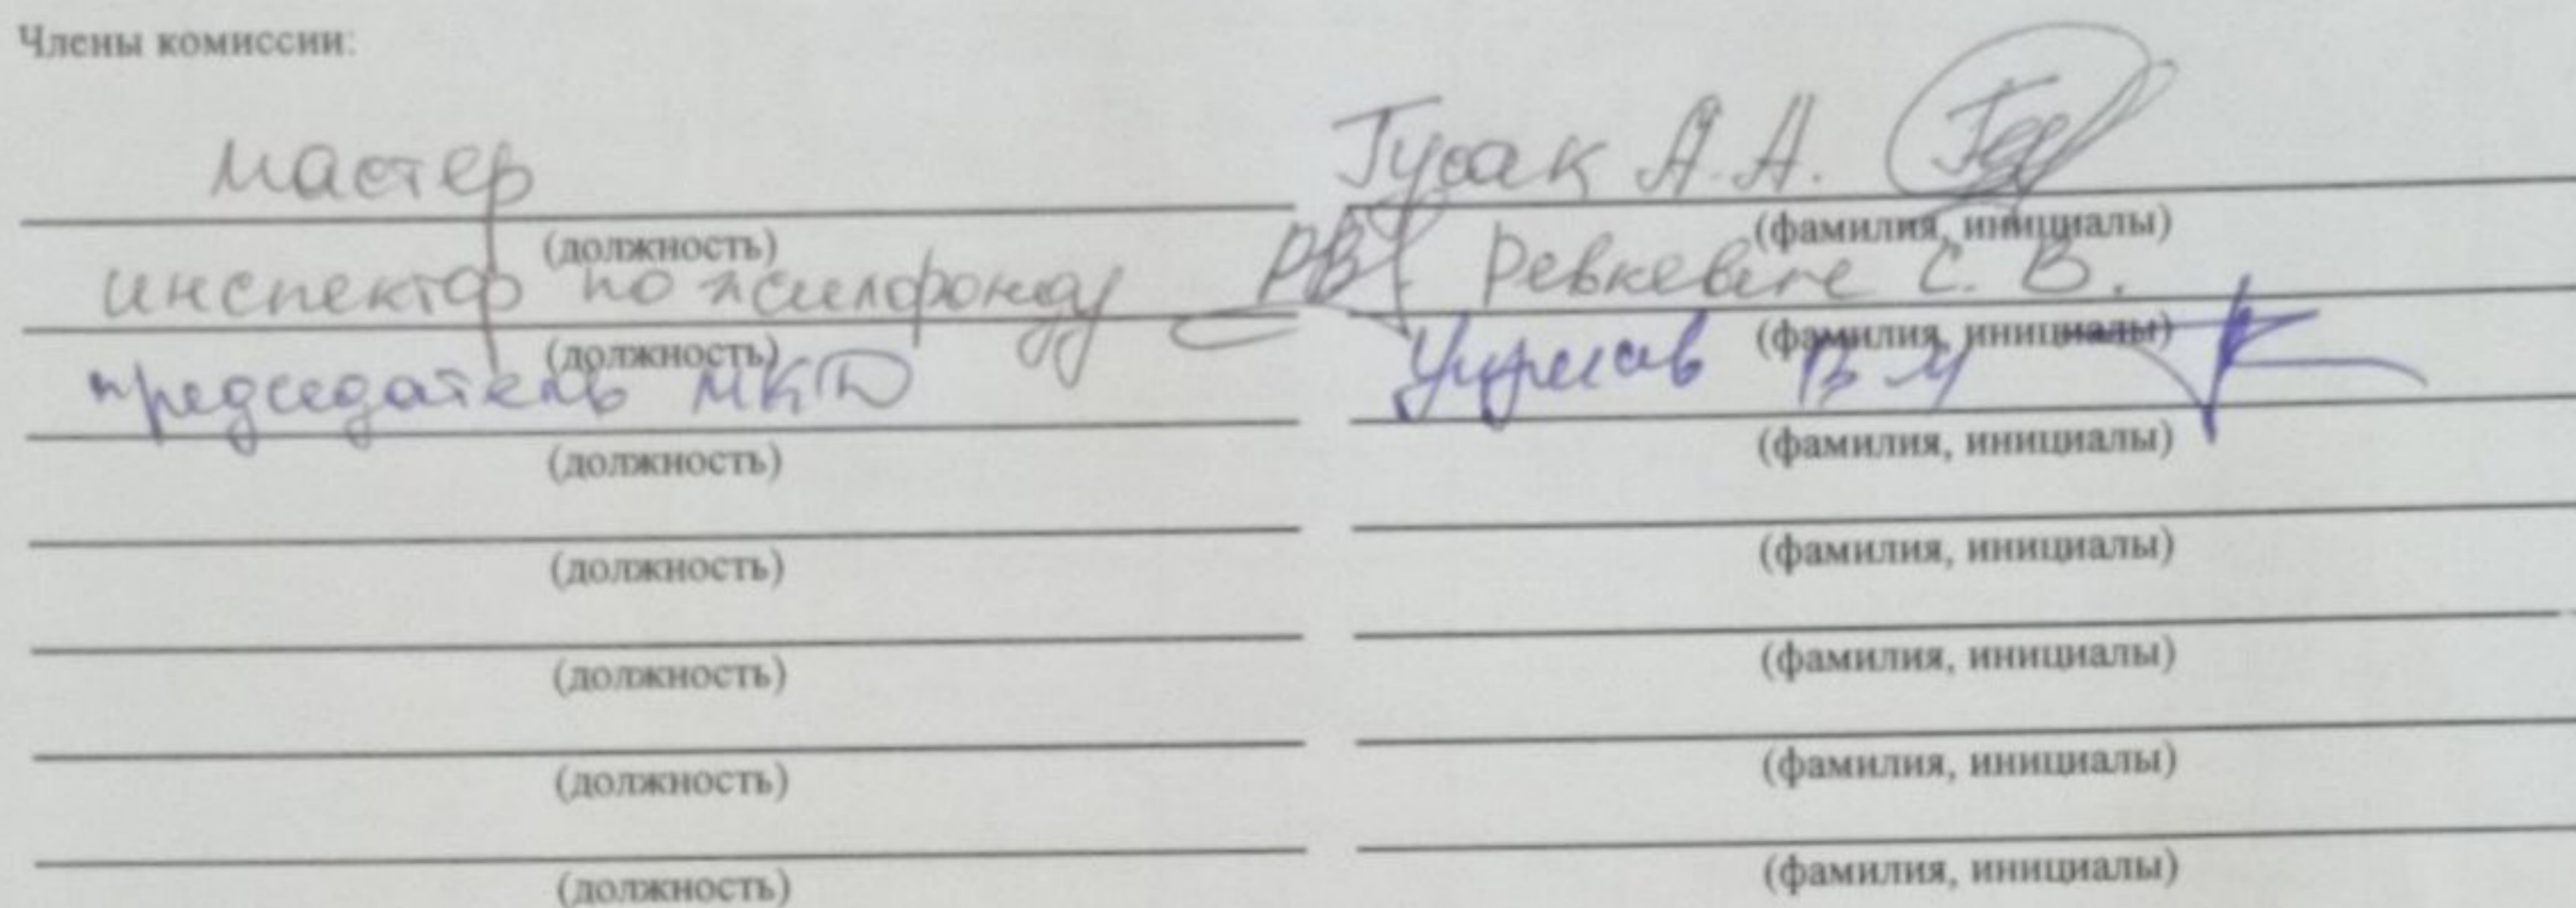 Члены комиссии:
мастер Гусак А.А.
(должность) (фамилия, инициалы)
инспектор по жилфонду Ревкевич С.В.
(должность) (фамилия, инициалы)
председатель МКД В
(должность) (фамилия, инициалы)
(должность) (фамилия, инициалы)
(должность) (фамилия, инициалы)
(должность) (фамилия, инициалы)
(должность) (фамилия, инициалы)